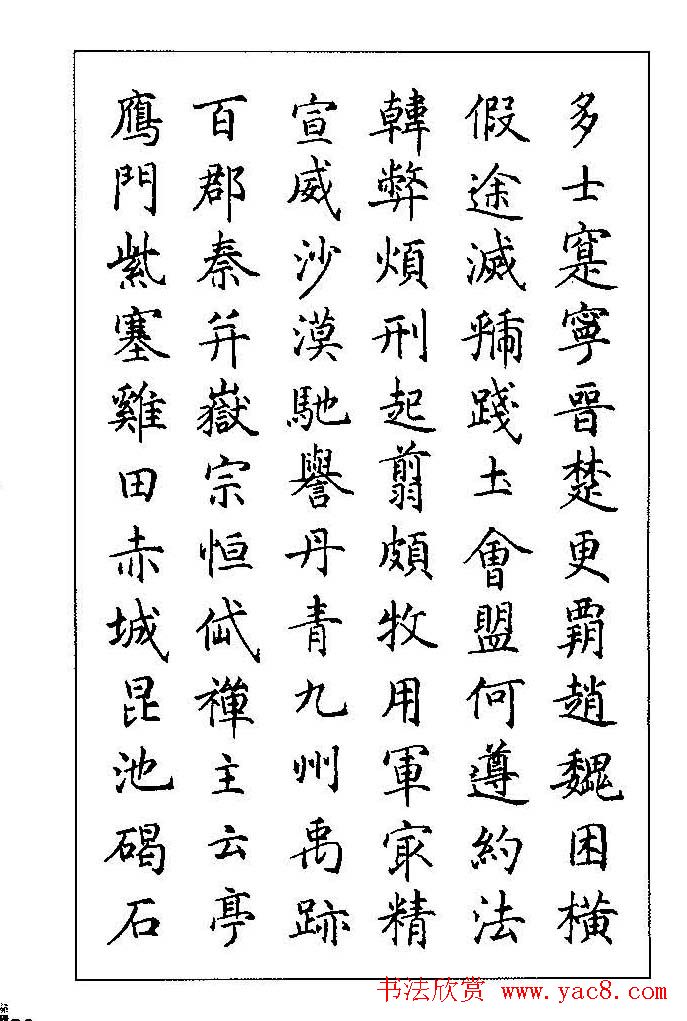 多士寔寧晉楚更覇趙魏困橫
假途滅虢踐土會盟何遵約法
韓弊煩刑起翦頗牧用軍冣精
宣威沙漠馳譽丹青九州禹跡
百郡秦并嶽宗恒岱禪主云亭
鴈門紫塞雞田赤城昆池碣石
书法欣赏 www.yac8.com